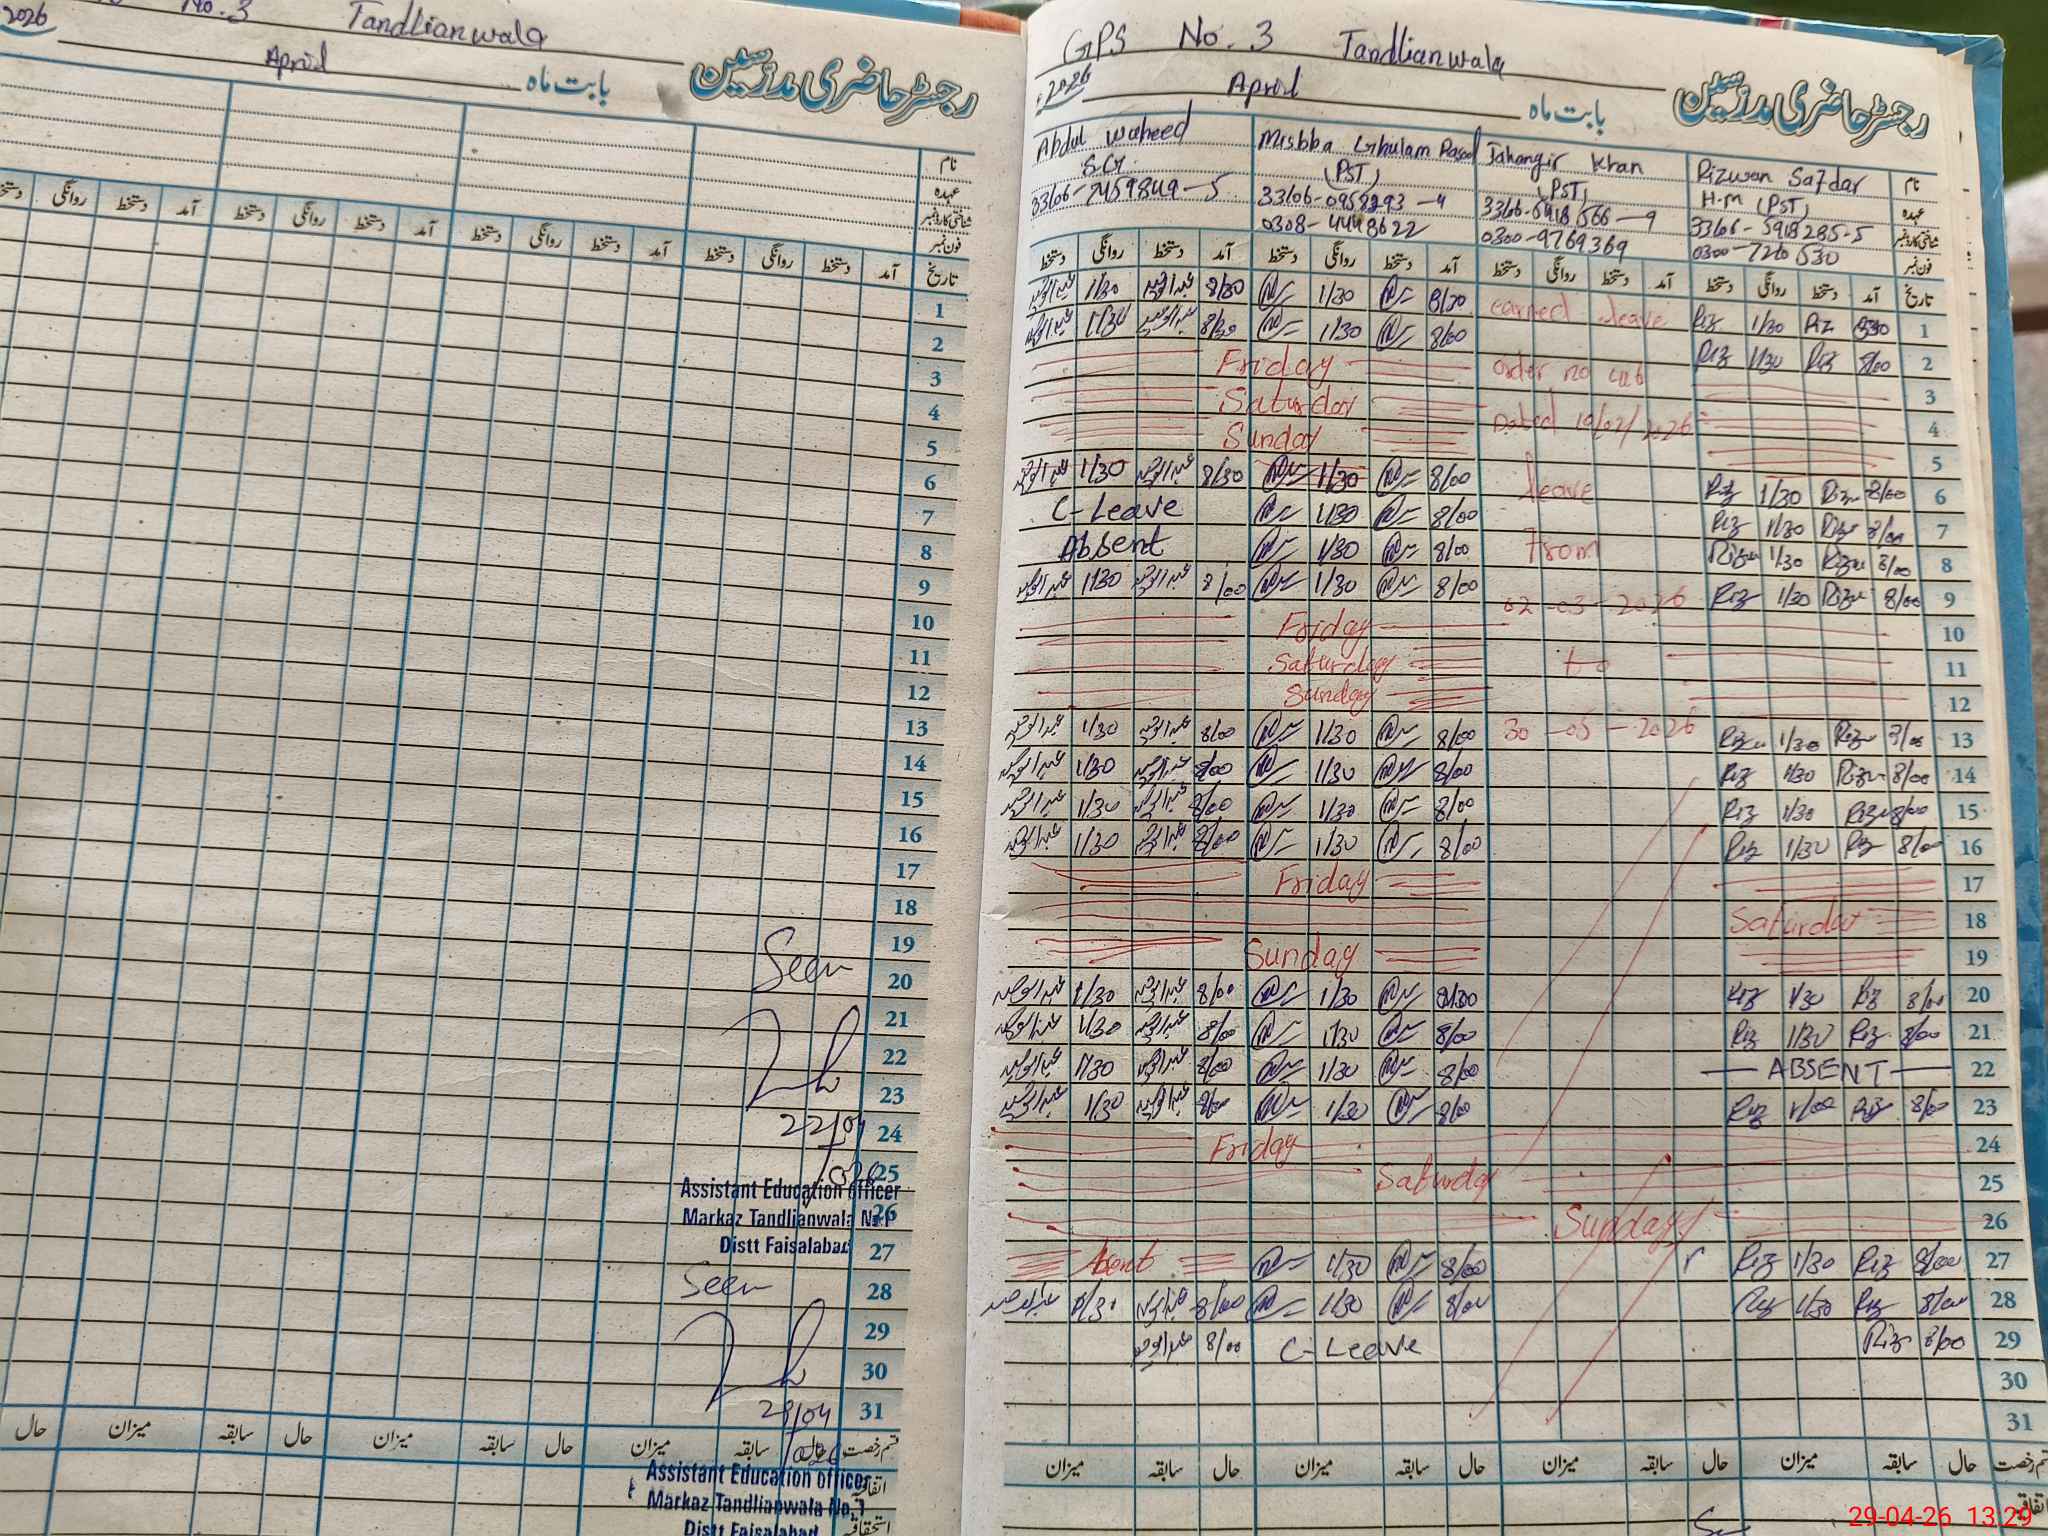 2026 No. 3 Tandlianwala
April بابت ماہ رجسٹر حاضری مدرّسین
نام
عہدہ
شناختی کارڈ نمبر
فون نمبر
روانگی دستخط آمد دستخط روانگی دستخط آمد دستخط روانگی دستخط آمد دستخط روانگی دستخط آمد تاریخ
1
2
3
4
5
6
7
8
9
10
11
12
13
14
15
16
17
18
19
Seen 20
21
22
23
22/04 24
25
Assistant Education officer
Markaz Tandlianwala No.1 26
Distt Faisalabad 27
Seen 28
29
30
31
حال میزان سابقہ حال میزان سابقہ حال میزان سابقہ حال قسم رخصت
Assistant Education officer اتفاقیہ
Markaz Tandlianwala No.1
Distt Faisalabad استحقاقیہ
GPS No. 3 Tandlianwala
2026 April بابت ماہ رجسٹر حاضری مدرّسین
Abdul Waheed Misbba Ghulam Rasool Jahangir Khan Rizwan Safdar نام
(PST) (PST) H.M (PST) عہدہ
33106-0958293-4 شناختی کارڈ نمبر
0308-4448622 0300-9769369 فون نمبر
دستخط روانگی دستخط آمد دستخط روانگی دستخط آمد دستخط روانگی دستخط آمد دستخط روانگی دستخط آمد تاریخ
عبدالوحید 1/30 عبدالوحید 8/30 1/30 earned leave Riz 1/30 Riz 1
عبدالوحید 1/30 عبدالوحید 8/30 1/30 8/00 Riz 1/30 Riz 8/00 2
Friday order no 3
Saturday Dated 4
Sunday 5
عبدالوحید 1/30 عبدالوحید 8/30 1/30 8/00 leave Riz 1/30 Riz 8/00 6
C-Leave 1/30 8/00 Riz 1/30 Riz 8/00 7
Absent 1/30 8/00 From Riz 1/30 Riz 8/00 8
عبدالوحید 1/30 عبدالوحید 8/00 1/30 8/00 02-03-2026 Riz 1/30 Riz 8/00 9
Friday 10
Saturday to 11
Sunday 12
عبدالوحید 1/30 عبدالوحید 8/00 1/30 8/00 30-05-2026 Riz 1/30 Riz 8/00 13
عبدالوحید 1/30 عبدالوحید 8/00 1/30 8/00 Riz 1/30 Riz 8/00 14
عبدالوحید 1/30 عبدالوحید 8/00 1/30 8/00 Riz 1/30 Riz 8/00 15
عبدالوحید 1/30 عبدالوحید 8/00 1/30 8/00 Riz 1/30 Riz 8/00 16
Friday 17
Saturday 18
Sunday 19
عبدالوحید 1/30 عبدالوحید 8/00 1/30 Riz 1/30 Riz 8/00 20
عبدالوحید 1/30 عبدالوحید 8/00 1/30 8/00 Riz 1/30 Riz 8/00 21
عبدالوحید 1/30 عبدالوحید 8/00 1/30 8/00 ABSENT 22
عبدالوحید 1/30 عبدالوحید 8/00 1/30 8/00 Riz Riz 8/00 23
Friday 24
Saturday 25
Sunday 26
Absent 1/30 8/00 Riz 1/30 Riz 8/00 27
عبدالوحید عبدالوحید 8/00 1/30 8/00 Riz 1/30 Riz 8/00 28
عبدالوحید 8/00 C-Leave Riz 8/00 29
30
31
میزان سابقہ حال میزان سابقہ حال میزان سابقہ حال میزان سابقہ حال قسم رخصت
اتفاقیہ
29-04-26 13:29